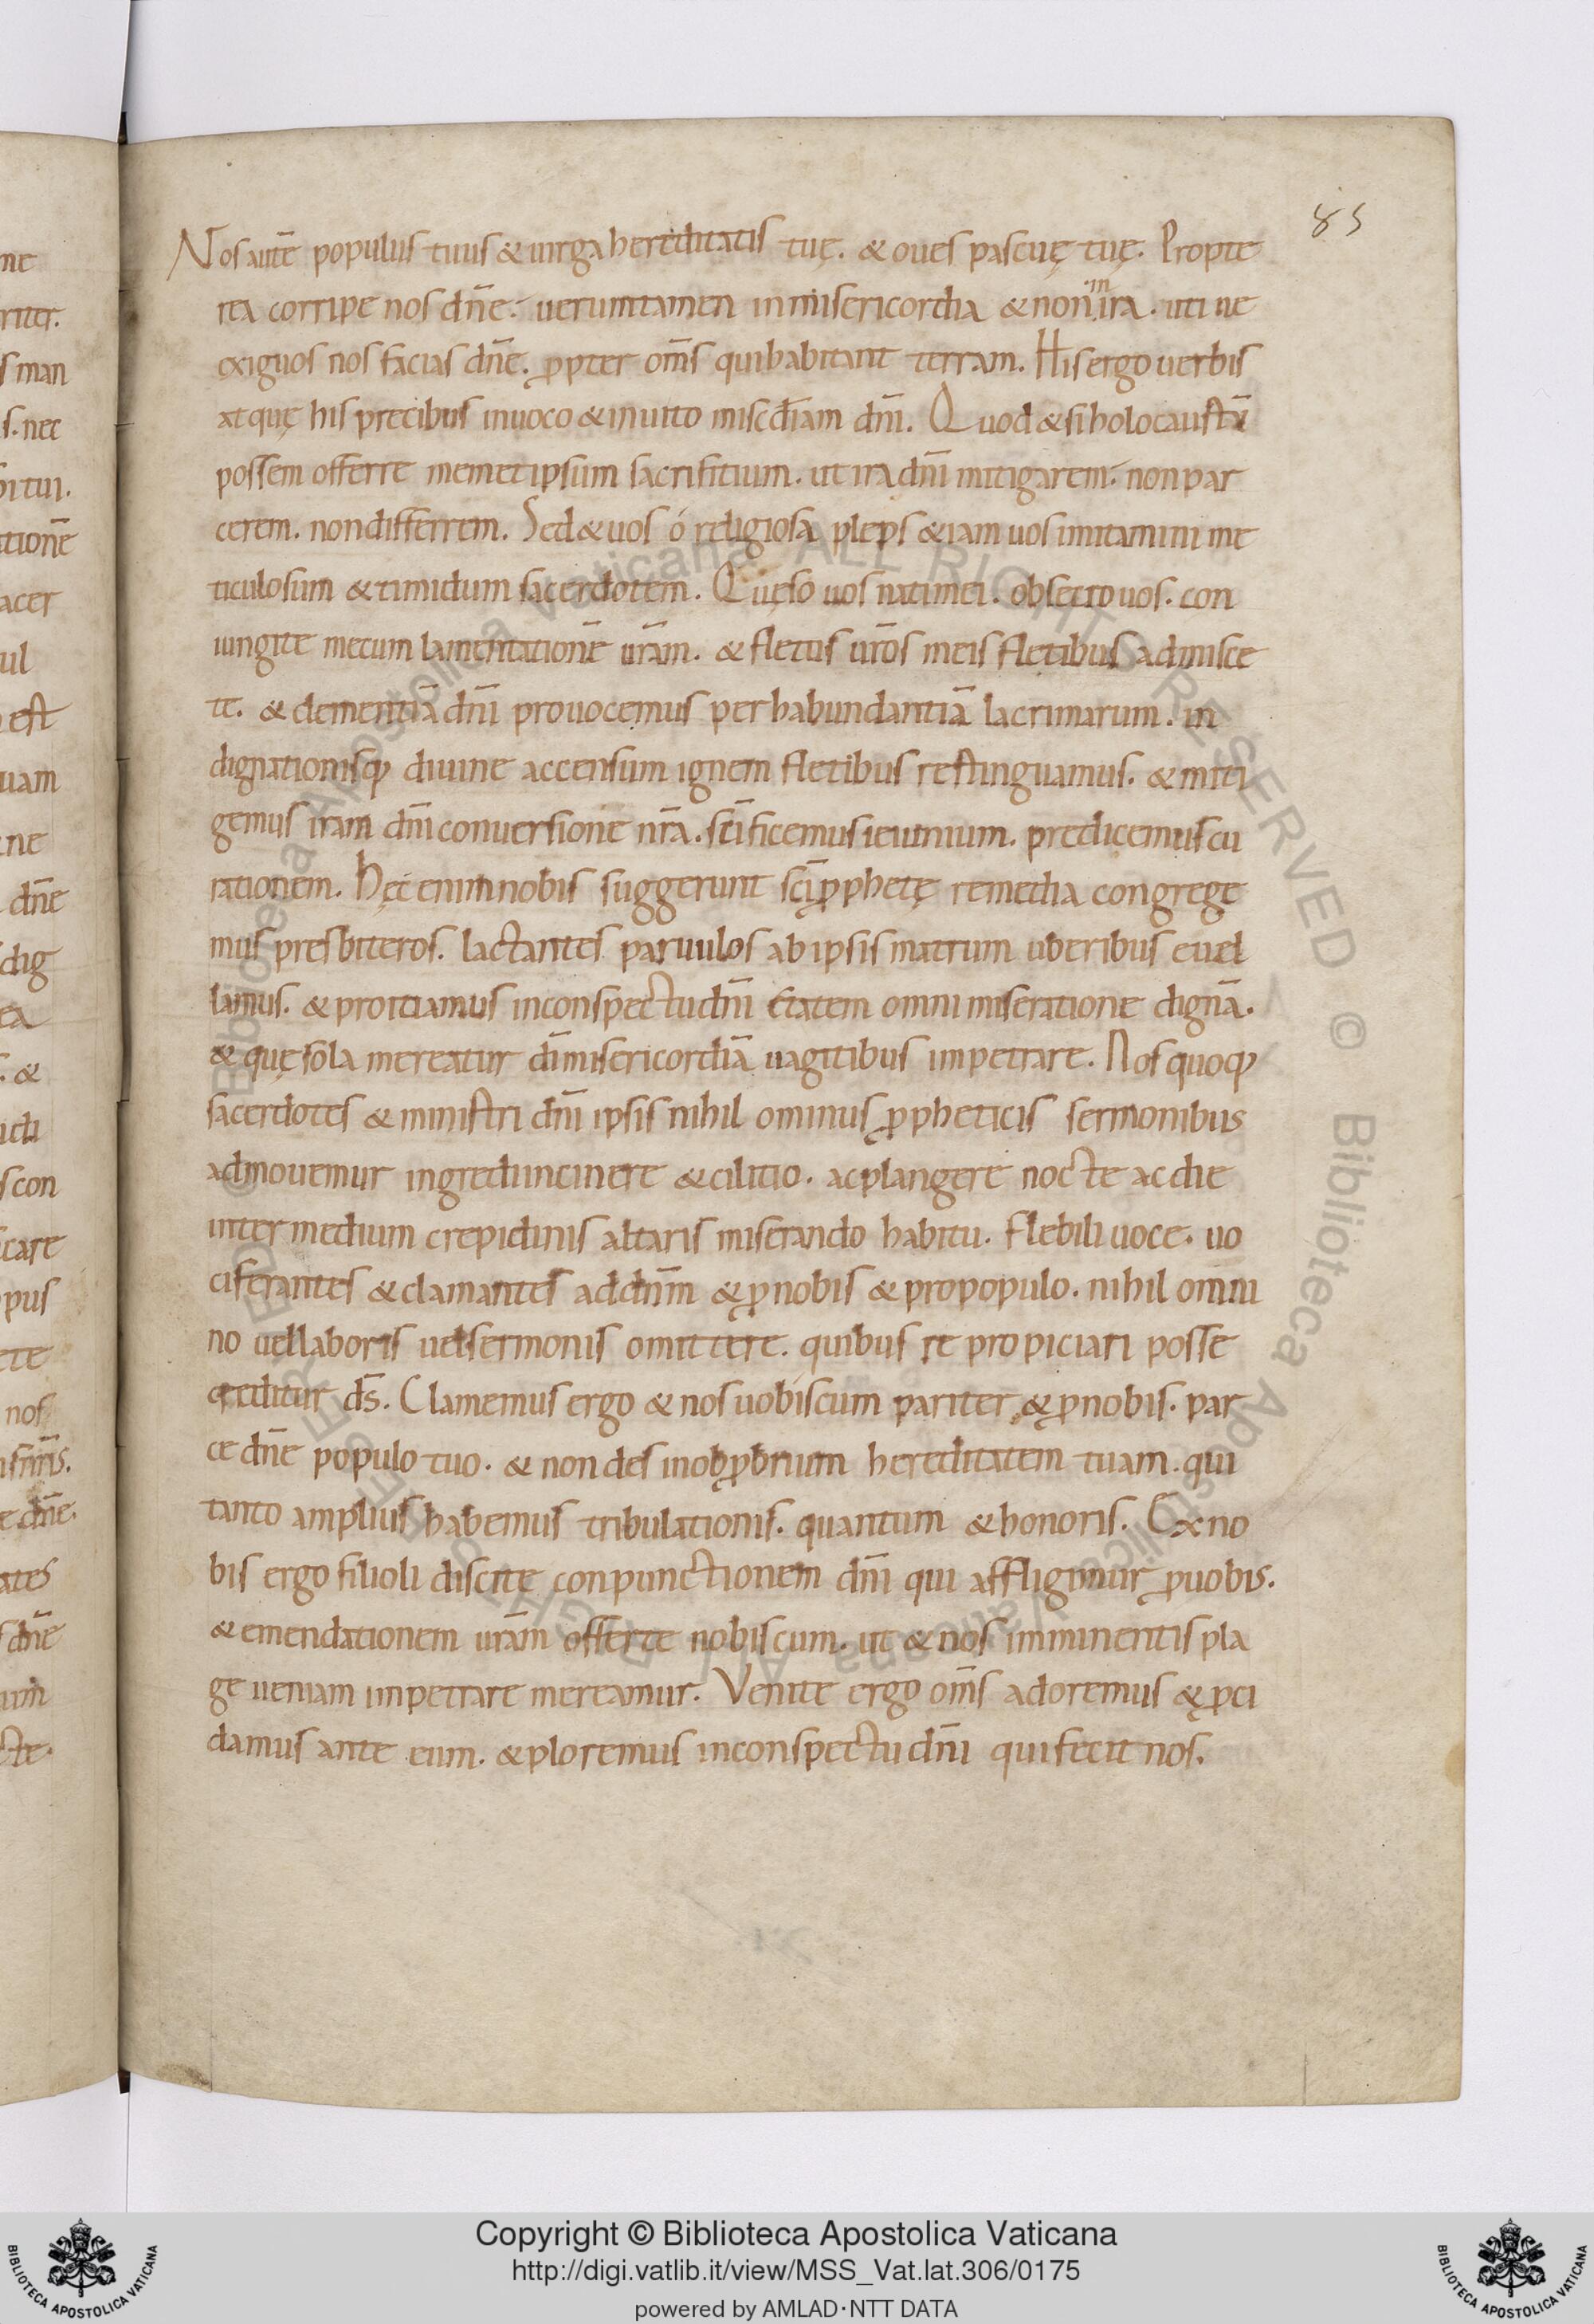 85
Nos autē populus tuus & uirga hereditatis tuę. & oues pascuę tuę. Propte
rea corripe nos dn̄e. uerumtamen in misericordia & non in ira. uti ne
exiguos nos facias dn̄e. ꝓpter om̄s qui habitant terram. His ergo uerbis
atquę his precibus inuoco & inuito misc̄diam dn̄i. Quod & si holocaustū
possem offerre memet ipsum sacrifitium. ut ira dn̄i mitigarem. non par
cerem. non differrem. Sed & uos ó religiosa pleps & iam uos imitamini me
ticulosum & timidum sacerdotem. Quęso uos nati mei. obsecro uos. con
iungite mecum lamentationē ur̄am. & fletus ur̄os meis fletibus admisce
te. & clementiā dn̄i prouocemus per habundantiā lacrimarum. in
dignationisqꝫ diuine accensum ignem fletibus restinguamus. & miti
gemus iram dn̄i conuersione nr̄a. sc̄ificemus ieiunium. predicemus cu
rationem. Hęc enim nobis suggerunt sc̄i ꝓphetę remedia congrege
mus presbiteros. lactantes paruulos ab ipsis matrum uberibus euel
lamus. & proitiamus in conspectu dn̄i etatem omni miseratione dignā.
& quę sola mereatur dī misericordiā uagitibus impetrare. Nos quoqꝫ
sacerdotes & ministri dn̄i ipsis nihil ominus ꝓpheticis sermonibus
admouemur ingredi in cinere & cilitio. ac plangere nocte ac die
inter medium crepidinis altaris miserando habitu. flebili uoce. uo
ciferantes & clamantes ad dn̄m & ꝓ nobis & pro populo. nihil omni
no uel laboris uel sermonis omittere. quibus re propiciari posse
creditur ds̄. Clamemus ergo & nos uobiscum pariter & ꝓ nobis. par
ce dn̄e populo tuo. & non des in obꝓbrium hereditatem tuam. qui
tanto amplius habemus tribulationis. quantum & honoris. Ex no
bis ergo filioli discite conpunctionem dn̄i qui affligimur ꝓ uobis.
& emendationem ur̄am offerte nobiscum. ut & nos imminentis pla
ge ueniam impetrare mereamur. Venite ergo om̄s adoremus & ꝓci
damus ante eum. & ploremus in conspectu dn̄i qui fecit nos.
Copyright © Biblioteca Apostolica Vaticana
http://digi.vatlib.it/view/MSS_Vat.lat.306/0175
powered by AMLAD·NTT DATA